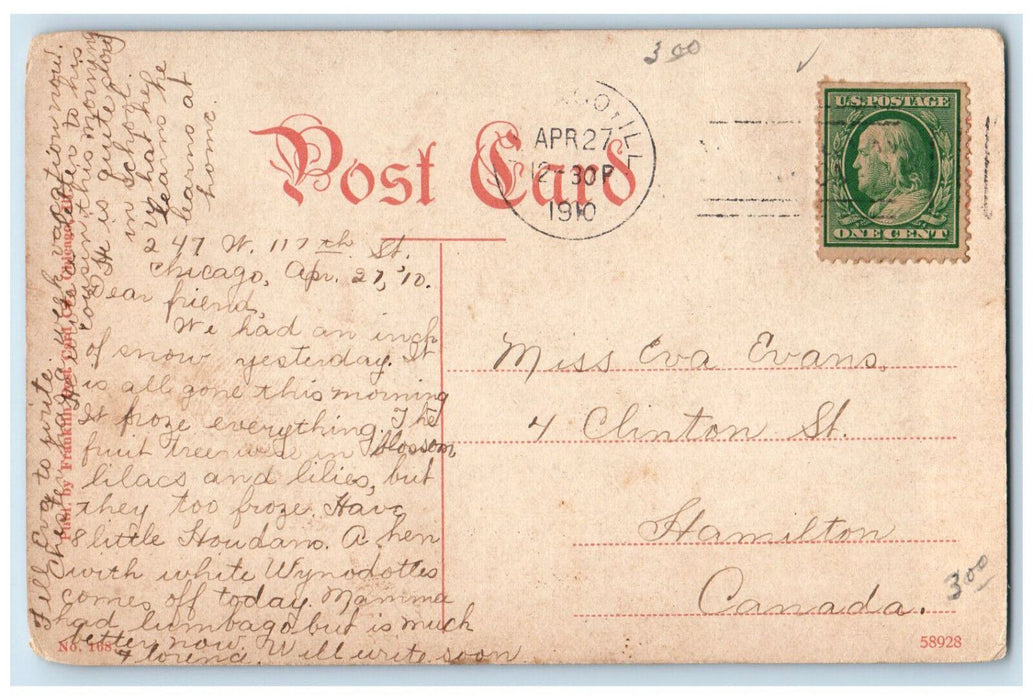 Post Card
ILL
APR 27
12-30 P
1910
U.S. POSTAGE
ONE CENT
3 00
247 W. 117th St.
Chicago, Apr. 27, '10.
Dear friend,
We had an inch
of snow yesterday. It
is all gone this morning
It froze everything. The
fruit trees were in blossom,
lilacs and lilies, but
they too froze. Have
8 little Houdans. A hen
with white Wynodottes
comes off today. Mamma
had lumbago but is much
better now.
Florence. Will write soon
Tell Eva to write
week vacation now.
Chester
write a letter to his
cousin this morning
He is quite slow
in school.
What he
learns he
learns at
home
Miss Eva Evans,
4 Clinton St.
Hamilton
Canada.
3 00
Publ. by Franklin Post Card Co., Chicago
No. 168
58928